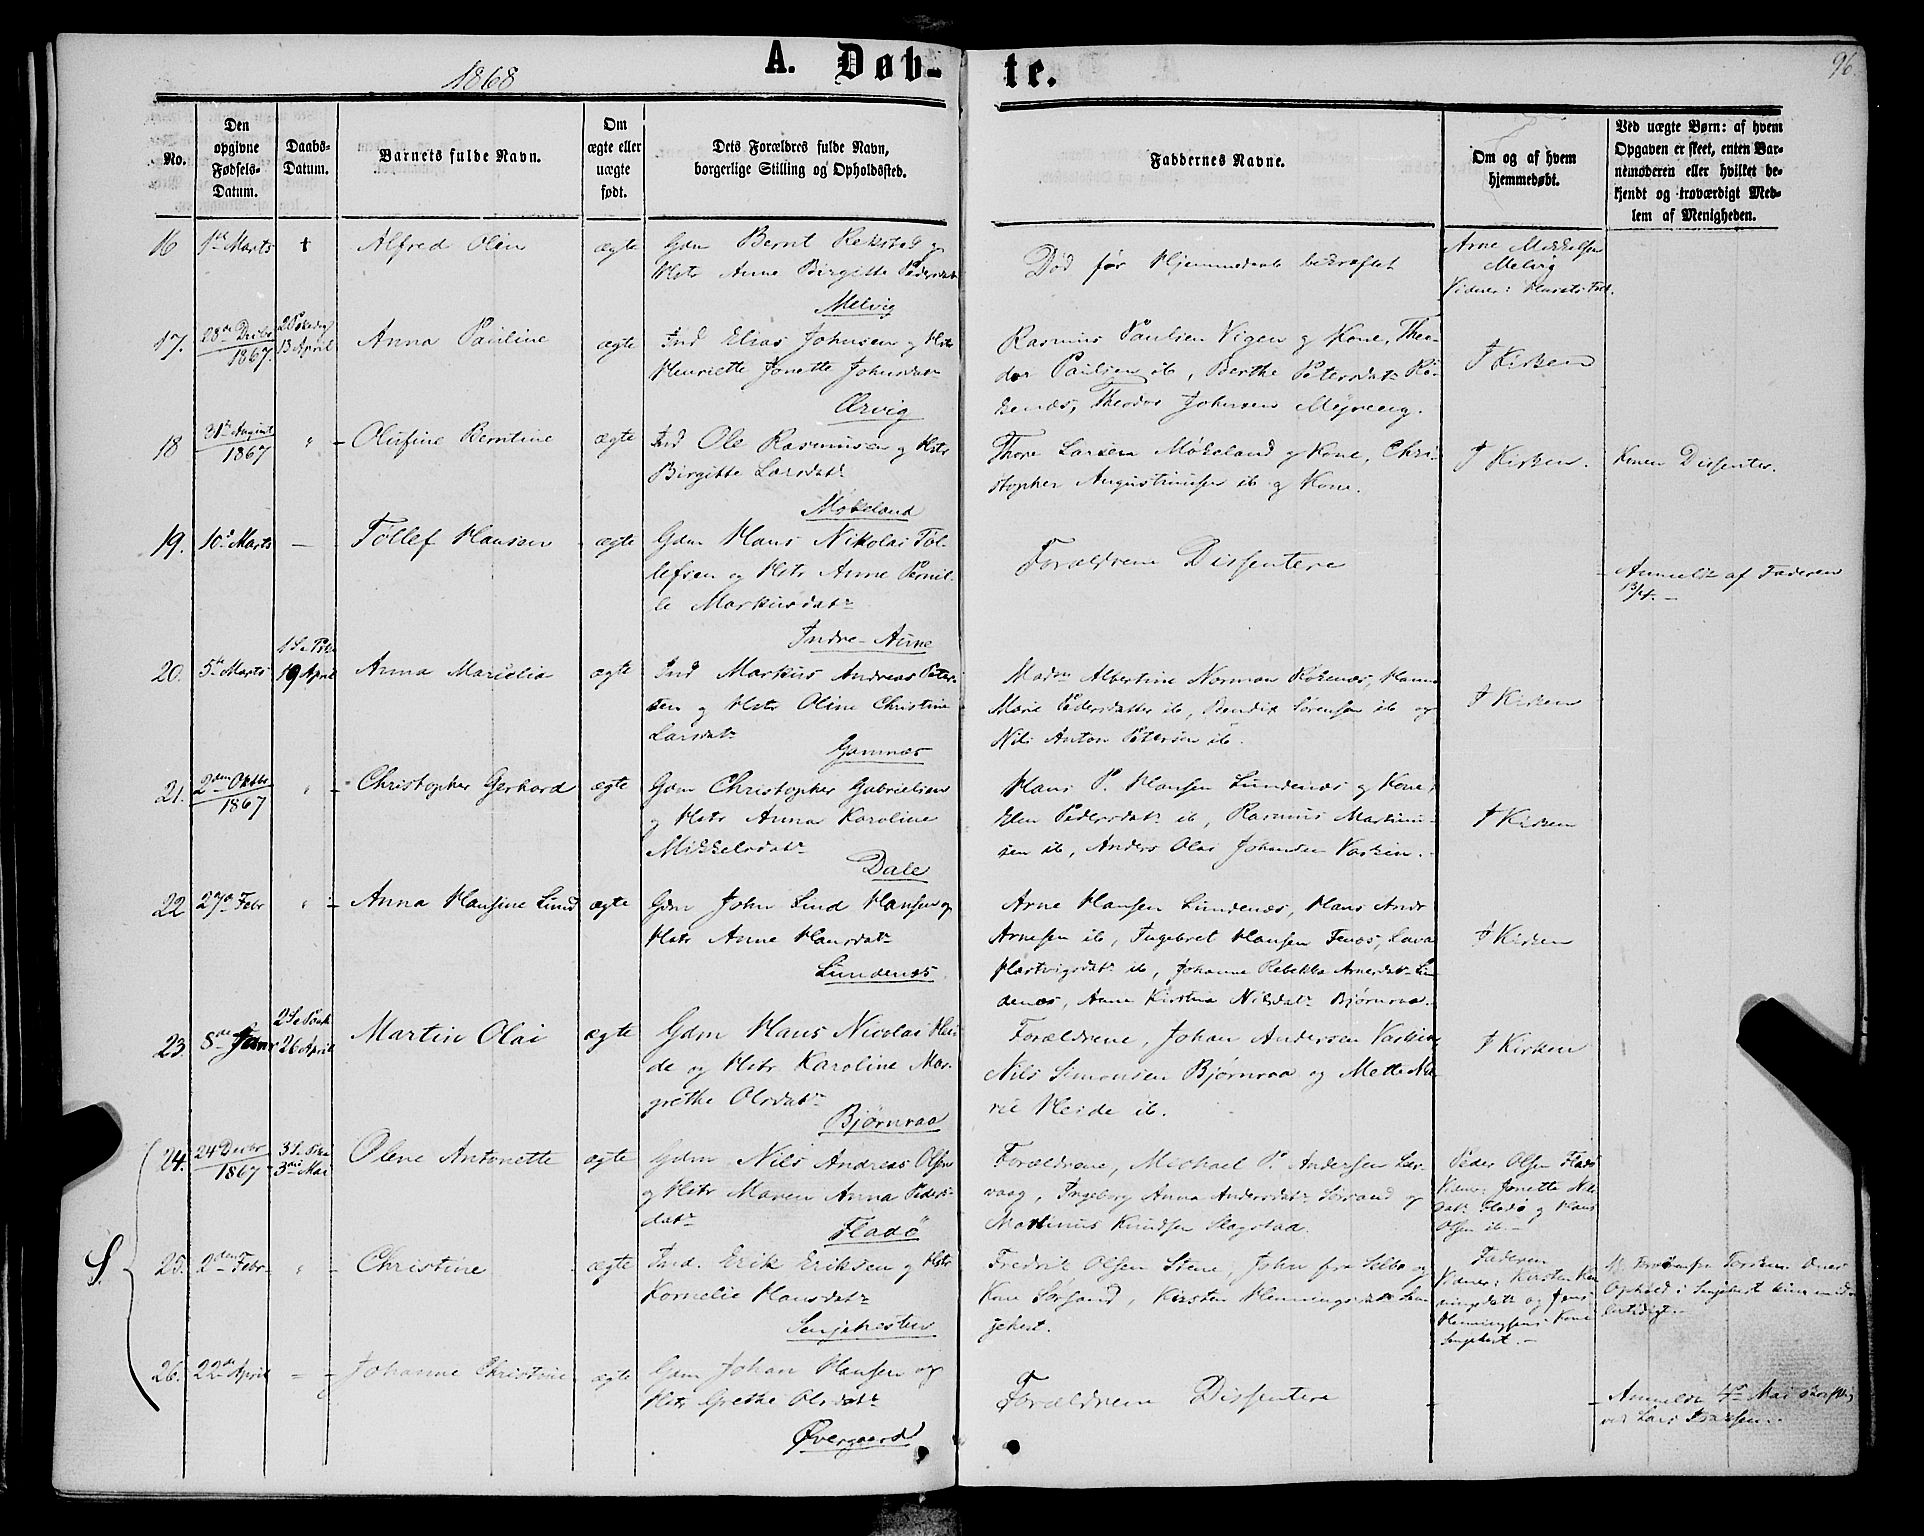 1868
A. Døb-
te.
96
No.
Den opgivne Fødsels-Datum.
Daabs-Datum.
Barnets fulde Navn.
Om ægte eller uægte født.
Dets Forældres fulde Navn, borgerlige Stilling og Opholdssted.
Faddernes Navne.
Om og af hvem hjemmedøbt.
Ved uægte Børn: af hvem Opgaven er skeet, enten Barnemoderen eller hvilket bekjendt og troværdigt Medlem af Menigheden.
16 1ste Marts + Alfred Olen ægte Gdm Bernt Rekstad og
Hstr Anne Birgitte Pedersdatr
Melvig
Død før Hjemmedaab bekræftet
Arne Mikkelsen
Melvig
Vidner: Husets Folk
17. 28de Decbr 1867. 13 April Anna Pauline ægte Ind Elias Johnsen og Hstr
Henriette Jonette Johnsdatr
Ervig
Rasmus Paulsen Vigen og Kone, Theo-
dor Paulsen ib, Berthe Petersdatr Rø-
kenæs, Theodor Johnsen Myreng.
I Kirken
18 31te August 1867 " Olufine Berntine ægte Ind Ole Rasmussen og Hstr
Birgitte Larsdatr
Møkeland
Thore Larsen Møkeland og Kone, Chri-
stopher Augustinusen ib og Kone.
I Kirken. Konen Dissenter.
19. 10de Marts — Tøllef Hansen ægte Gdm Hans Nikolai Tøl-
lefsen og Hstr Anne Pernil-
le Markusdatr
Indre-Aune
Forældrene Dissentere
Anmeldt af Faderen
13/4. —
20. 5te Marts 19 April Anna Marselia ægte Ind Markus Andreas Peter-
sen og Hstr Oline Christine
Larsdatr
Gamnæs
Madm Albertine Norman Røkenæs, Hanna
Marie Pedersdatter ib, Bendix Sørensen ib og
Nils Anton Petersen ib.
I Kirken
21. 2den Oktbr 1867 " Christopher Gerhard ægte Gdm Christopher Gabrielsen
og Hstr Anna Karoline
Mikkelsdatr
Dale
Hans P. Hansen Lundenæs og Kone,
Elen Pedersdatr ib, Rasmus Markus-
sen ib, Anders Olai Johansen
I Kirken
22 27de Febr " Anna Hansine Lund ægte Gdm John Lind Hansen og
Hstr Anne Hansdatr
Lundenæs
Arne Hansen Lundenæs, Hans Andr
Arnesen ib, Ingebret Hansen Fenes, Lava
Hartvigsdatr ib, Johanne Rebekka Arnesdatr Lun
denæs, Anne Kirstina Nilsdatr Bjørnraa.
I Kirken
23. 8de Janr 26 April Martin Olai ægte Gdm Hans Nicolai Hei-
de og Hstr Karoline Mar-
grethe Olsdatr
Bjørnraa
Forældrene, Johan Andersen
Nils Simonsen Bjørnraa og Mette Ma-
rie Heide ib.
I Kirken
24. 24 Decbr 1867 3die Mai Olene Antonette ægte Gdm Nils Andreas Olsen
og Hstr Maren Anna Peders-
datr
Fladø
Forældrene, Michael P. Andersen Ler-
vaag, Ingeborg Anna Andersdatr Sørsand og
Martinus Knudsen Slagstad.
Peder Olsen Fladø
Vidner: Jonette Nils
datr Fladø og Hans
Olsen ib. —
S.
25. 2den Febr. " Christine ægte Ind. Erik Eriksen og Hstr
Kornelie Hansdatr
Senjehesten
Fredrik Olsen Stene, John fra Selbo og
Kone Sørsand, Kirsten Henningsdatr Sen-
jehest.
Faderen
Vidner: Kirsten Hen
ningsdatr og Jens
Henningsens Kone
Senjehest. —
Ophold i Senjehest kun mid-
lertidigt.
26. 22de April Johanne Christine ægte Gdm Johan Hansen og
Hstr Grethe Olsdatr
Øvergaard
Forældrene Dissentere
Anmeldt 4de Mai skriftlig
ved Lars